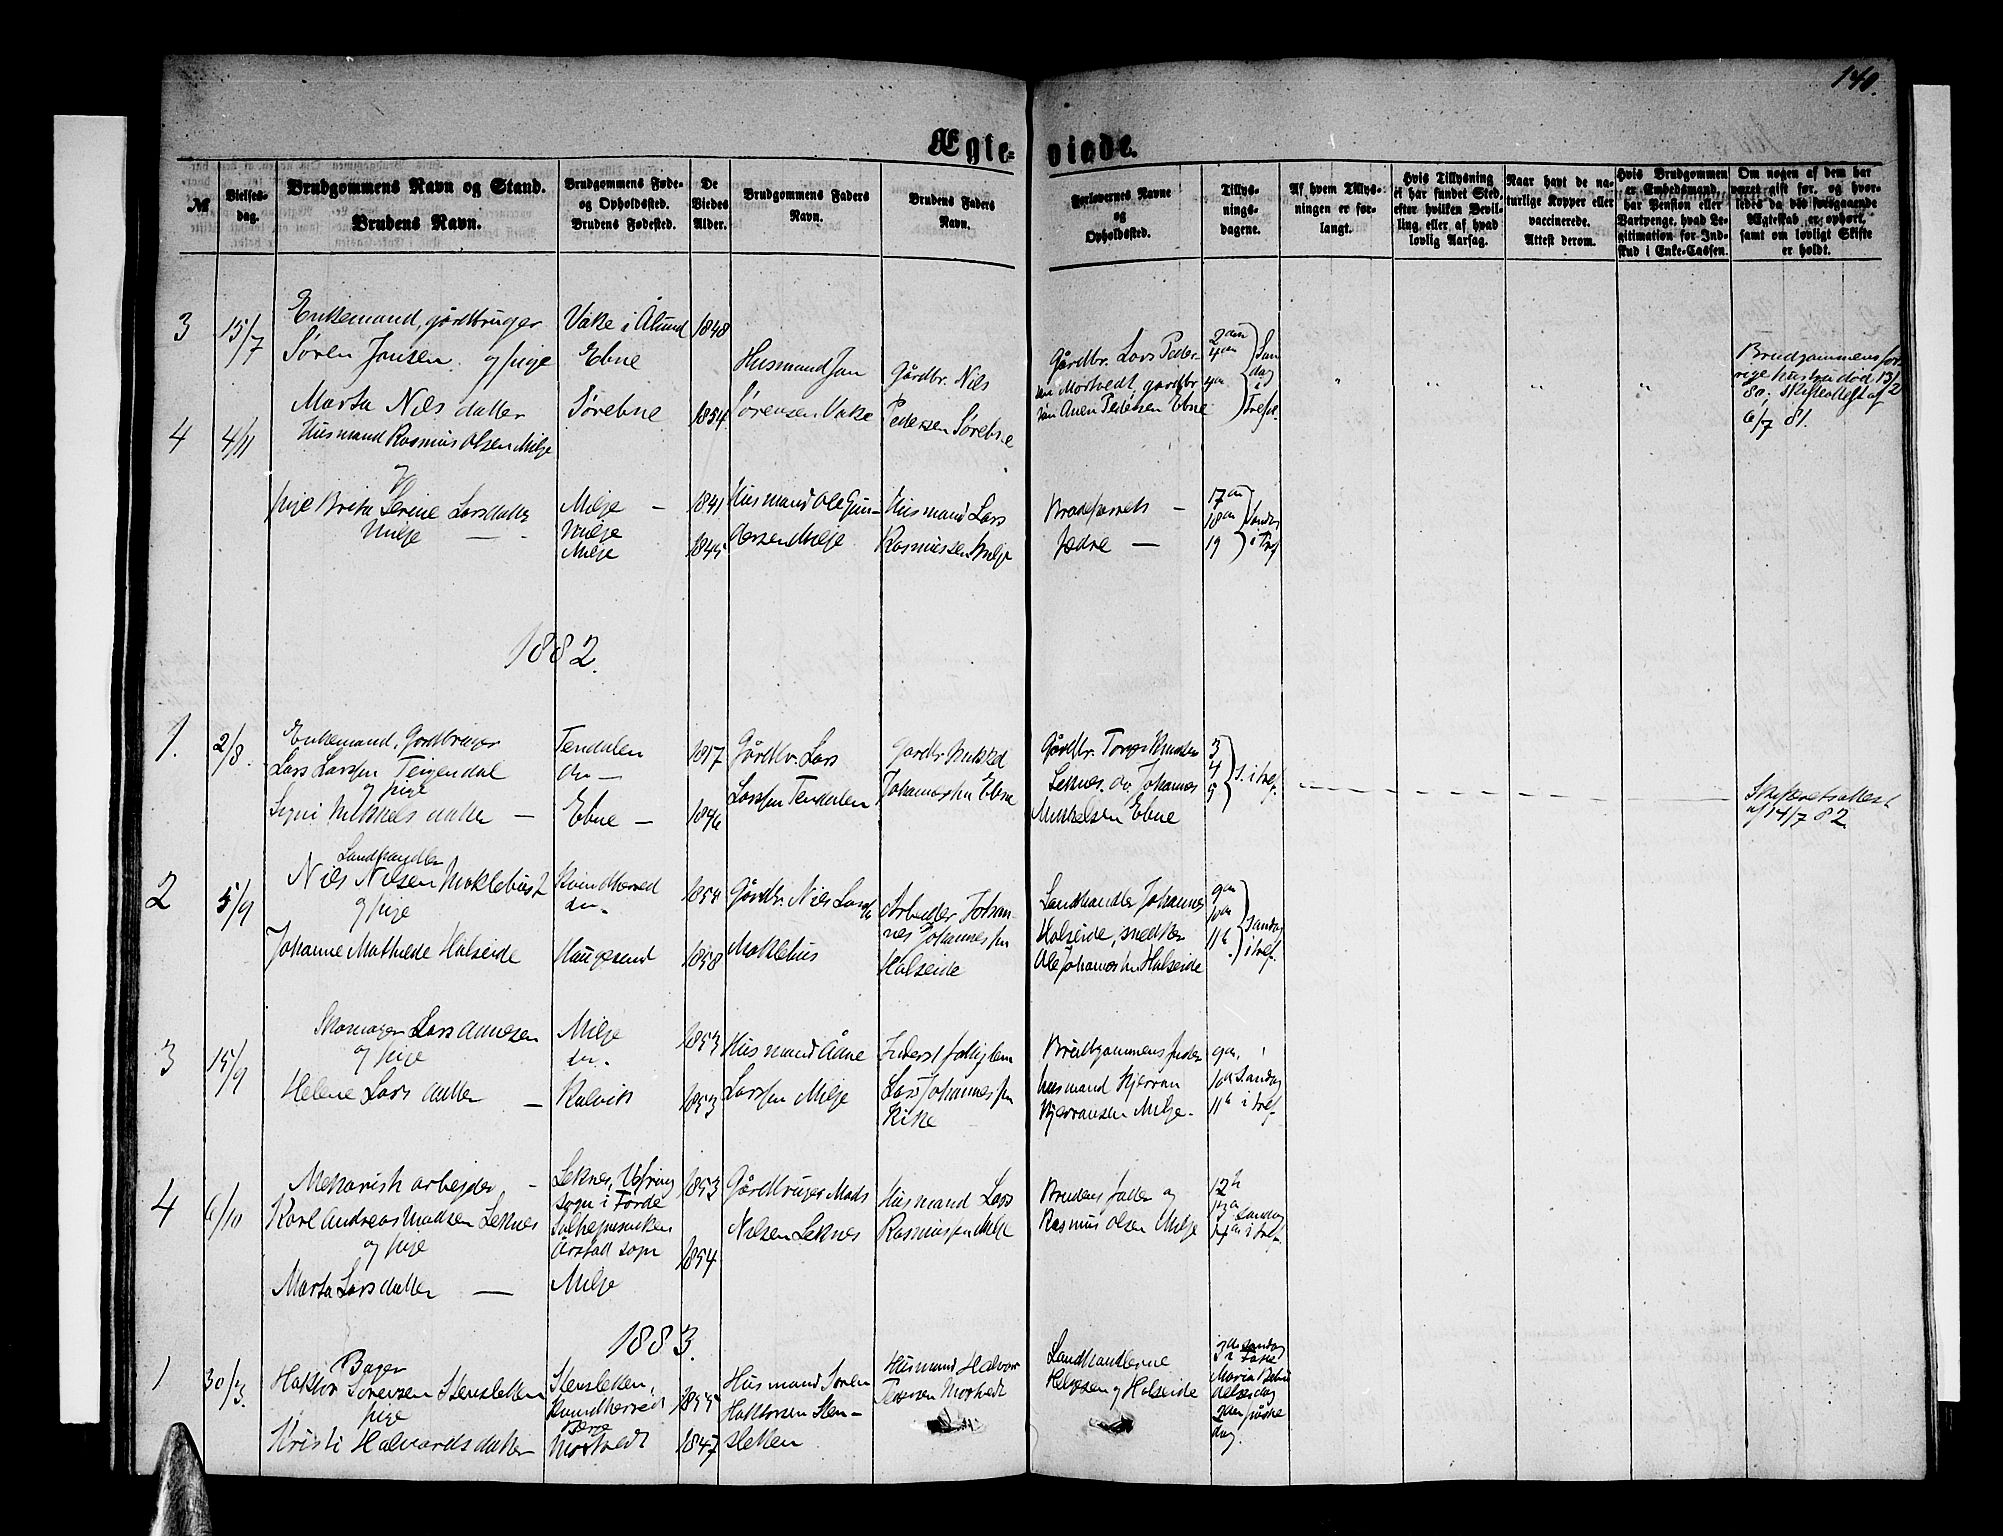 140.
Ægte- viede.
№
Vielses-
dag.
Brudgommens Navn og Stand.
Brudens Navn.
Brudgommens Føde-
og Opholdssted.
Brudens Fødested.
De
Viedes
Alder.
Brudgommens Faders
Navn.
Brudens Faders
Navn.
Forlovernes Navne
og
Opholdssted.
Tillys-
nings-
dagene.
Af hvem Tillys-
ningen er for-
langt.
Hvis Tillysning
ei har fundet Sted,
efter hvilken Bevil-
ling eller af hvad
lovlig Aarsag.
Naar havt de na-
turlige Kopper eller
vaccinerede.
Attest derom.
Hvis Brudgommen
er Embedsmand,
har Pension eller
Vartpenge, hvad Le-
gitimation for Ind-
skud i Enke-Cassen.
Om nogen af dem har
været gift før, og hvor-
ledes da det foregaaende
Ægteskab er ophørt,
samt om lovligt Skifte
er holdt.
3
15/7
Enkemand, gårdbruger
Søren Jansen og pige
Marta Nilsdatter
Vake i Ølund
Ebne
Sørebne
1848
1854
Husmand Jan
Sørensen Vake
Gårdbr. Nils
Pedersen Sørebne
Gårdbr. Lars Peder-
sen Mortvedt, gårdbr
Pedersen Ebne
2den
4den
Søn
dag
i
Trefol.
Brudgommens for
rige hustru død 13/2
80. Skifteattest af
6/7 81.
4
4/11
Husmand Rasmus Olsen Milje
og
pige Brita Serine Larsdatter
Milje
Milje —
Milje
Milje
1841
1845
Husmand Ole Gun-
dersen Milje
Husmand Lars
Rasmussen Milje
Brudeparrets —
fædre —
17de
18de
19
Søndag
i Tref
1882.
1.
2/8.
Enkemand, Gårdbruger
Lars Larssen Teigendal
og pige
Signi Mikkelsdatter —
Tendalen
do —
Ebne —
1817
1846
Gårdbr. Lars
Larssen Tendalen
Gårdbr. Mikkel
Johannessen Ebne
Gårdbr. Knutsen
Leknes, do. Johannes
Mikkelsen Ebne
3
4
5
S. i tref.
Skifteretsattest
af 14/7 82
2
5/9
Landhandler
Nils Nilsen Moklebust
og pige
Johanne Mathilde Halseide
Kvindherred
do.
Haugesund
1854
1858
Gårdbr. Nils Larsen
Moklebus
Arbeider Johan-
nes Johannessen
Halseide
Landhandler Johannes
Halseide, snedker
Ole Johannessen Halseide
9de
10de
11te
søndag
i tref.
3
15/9
Skomager Lars Aanesen
og pige
Helene Larsdatter —
Milje
do.
Kalvik
1853
1853
Husmand Åane
Larssen Milje
Inderst fattiglem
Lars Johannessen
Rike
Brudgommens fader
husmand Kjerran
Kjerransen Milje.
9de
10de Søndag
11te i tref.
4
6/10
Mekanisk arbejder —
Karl Andreas Madsen Leknes
og pige
Marta Larsdatter —
Leknes,
sogn i Førde
Årstad sogn
Milje
1853
1854
Gårdbruger Mads
Nilsen Leknes
Husmand Lars
Rasmussen Milje
Brudens fader og
Rasmus Olsen Milje
12te
13de søndag
14de i tref.
1883.
1
30/3.
Bager
Haktor Sørensen Stensletten
pige
Kristi Halvardsdatter
Stensletten,
Kvindherred
Mortvedt
1855
1847
Husmand Søren
Haktorsen Sten-
sletten
Husmand Halvor
Mortvedt
Landhandlerne
Helgesen og Halseide
3de søndag
i Faste
Maria Bebud
delsesdag
2den påske
dag.